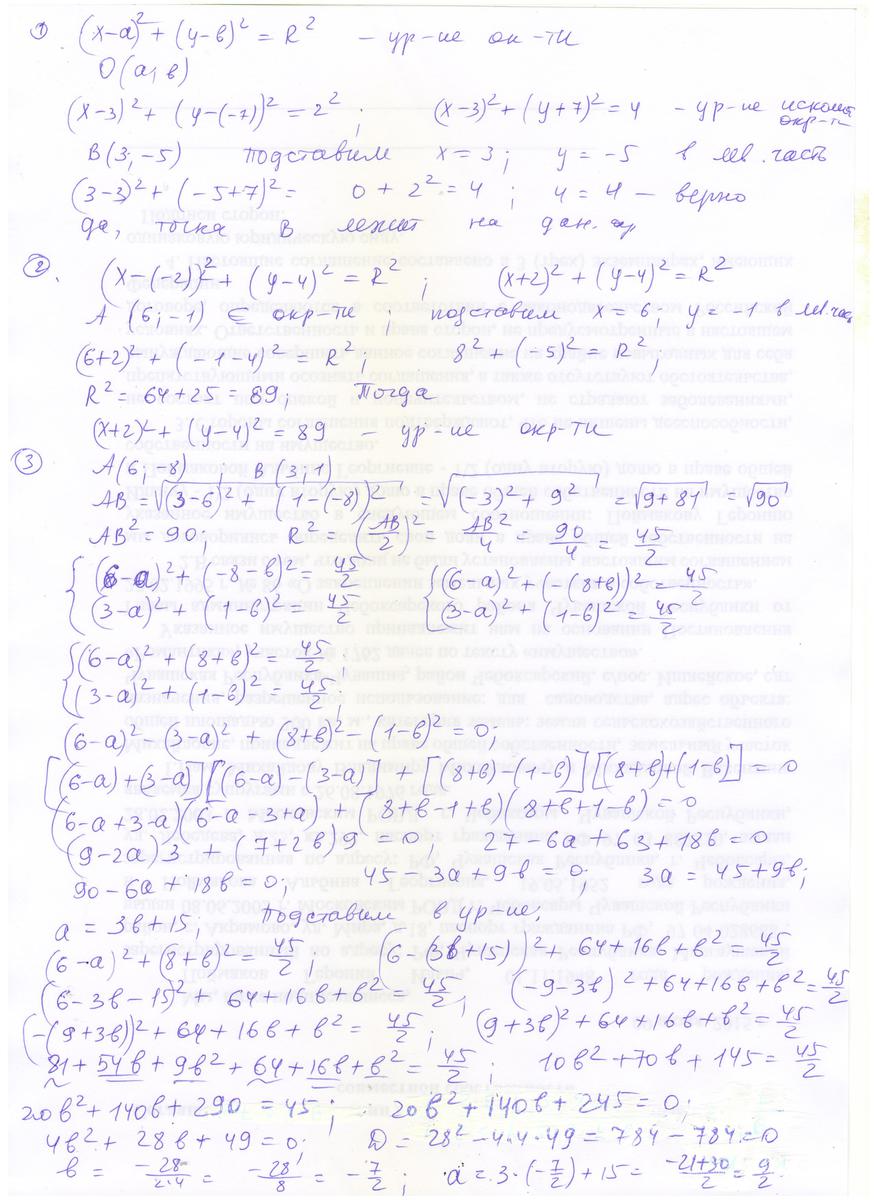 ① (x-a)² + (y-в)² = R² – ур-ие ок-ти
O(a; в)
(x-3)² + (y-(-7))² = 2²; (x-3)² + (y+7)² = 4 – ур-ие искомой окр-ти
B(3; -5) подставим x = 3; y = -5 в лев. часть
(3-3)² + (-5+7)² = 0 + 2² = 4; 4 = 4 – верно
да, точка B лежит на дан. окр
② (x-(-2))² + (y-4)² = R²; (x+2)² + (y-4)² = R²
A (6; -1) ∈ окр-ти; подставим x = 6 y = -1 в лев. часть
(6+2)² + (-1-4)² = R² 8² + (-5)² = R²;
R² = 64+25 = 89; Тогда
(x+2)² + (y-4)² = 89 – ур-ие окр-ти
③ A(6; -8) B(3; 1)
AB = √((3-6)² + (1-(-8))²) = √((-3)² + 9²) = √(9+81) = √90
AB² = 90; R² = (AB/2)² = AB²/4 = 90/4 = 45/2
{ (6-a)² + (-8-в)² = 45/2 { (6-a)² + (-(8+в))² = 45/2
(3-a)² + (1-в)² = 45/2 (3-a)² + (1-в)² = 45/2
{ (6-a)² + (8+в)² = 45/2;
(3-a)² + (1-в)² = 45/2
(6-a)² - (3-a)² + (8+в)² - (1-в)² = 0;
[(6-a)+(3-a)][(6-a)-(3-a)] + [(8+в)-(1-в)][(8+в)+(1-в)] = 0
(6-a+3-a)(6-a-3+a) + (8+в-1+в)(8+в+1-в) = 0
(9-2a)3 + (7+2в)9 = 0; 27-6a+63+18в = 0
90-6a+18в = 0; 45-3a+9в = 0; 3a = 45+9в;
a = 3в+15; Подставим в ур-ие;
(6-a)² + (8+в)² = 45/2; (6-(3в+15))² + 64+16в+в² = 45/2
(6-3в-15)² + 64+16в+в² = 45/2; (-9-3в)² + 64+16в+в² = 45/2
(-(9+3в))² + 64+16в+в² = 45/2; (9+3в)² + 64+16в+в² = 45/2
81+54в+9в²+64+16в+в² = 45/2; 10в²+70в+145 = 45/2
20в²+140в+290 = 45; 20в²+140в+245 = 0;
4в²+28в+49 = 0; D = 28²-4·4·49 = 784-784 = 0
в = -28/2·4 = -28/8 = -7/2; a = 3·(-7/2)+15 = -21+30/2 = 9/2